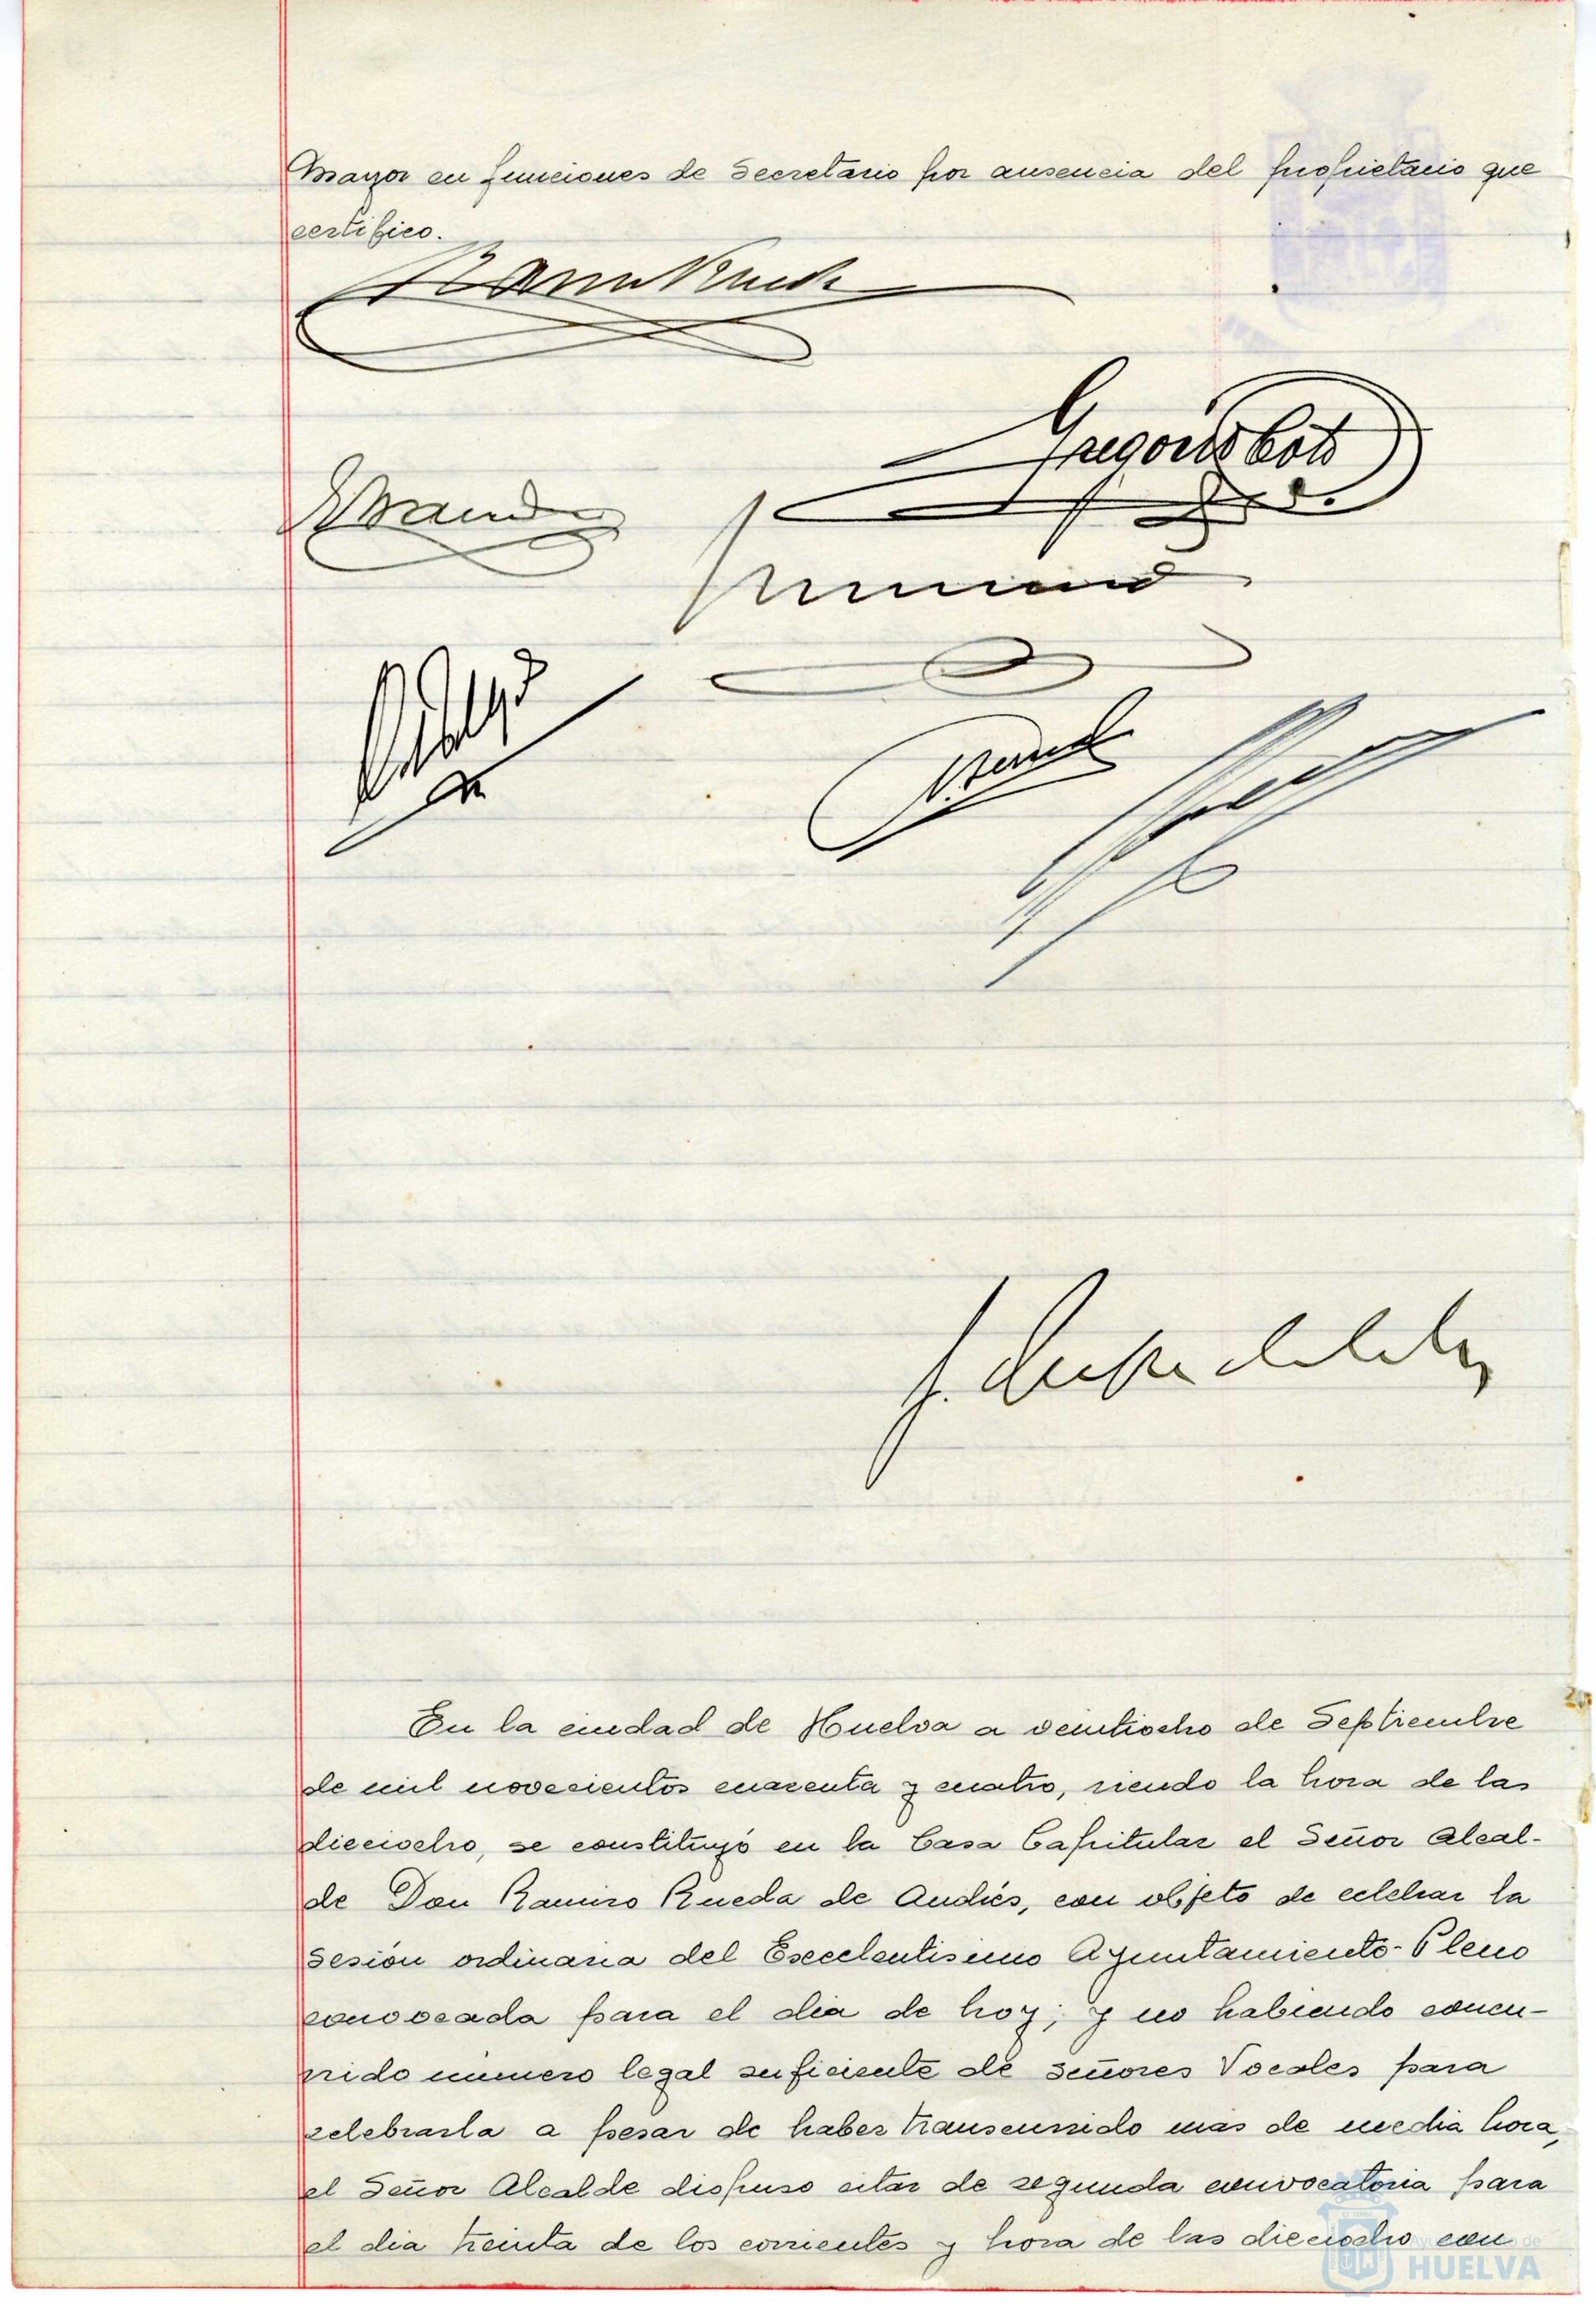 Mayor en funciones de Secretario por ausencia del propietario que
certifico.
Gregorio Coto
En la ciudad de Huelva a veintiocho de Septiembre
de mil novecientos cuarenta y cuatro, siendo la hora de las
dieciocho, se constituyó en la Casa Capitular el Señor Alcal-
de Don Ramiro Rueda de Andrés, con objeto de celebrar la
sesión ordinaria del Escelentisimo Ayuntamiento-Pleno
convocada para el dia de hoy; y no habiendo concu-
rrido número legal suficiente de señores Vocales para
celebrarla a pesar de haber transcurrido mas de media hora,
el Señor Alcalde dispuso citar de segunda convocatoria para
el dia treinta de los corrientes y hora de las dieciocho con
HUELVA